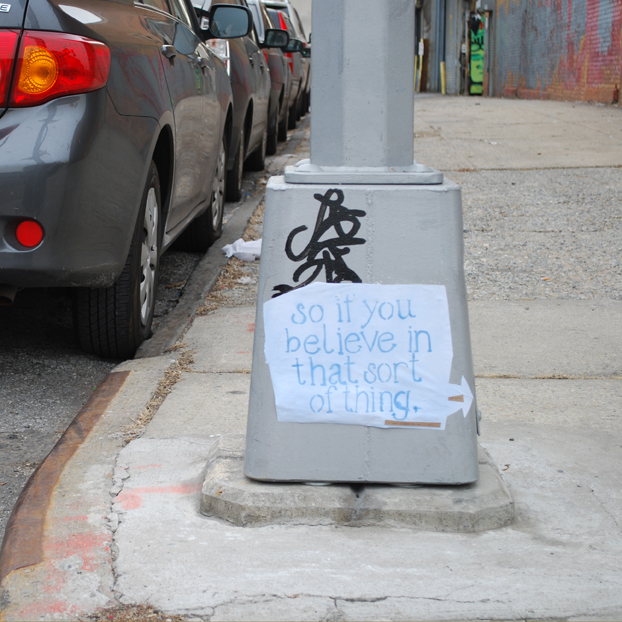 so if you
believe in
that sort
of thing.